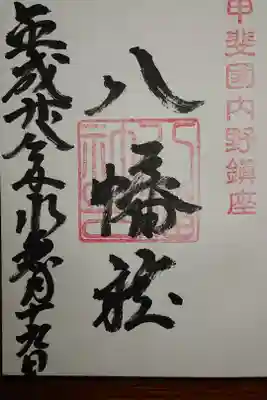 甲斐國内野鎮座
八幡社
平成廿八年水無月十九日